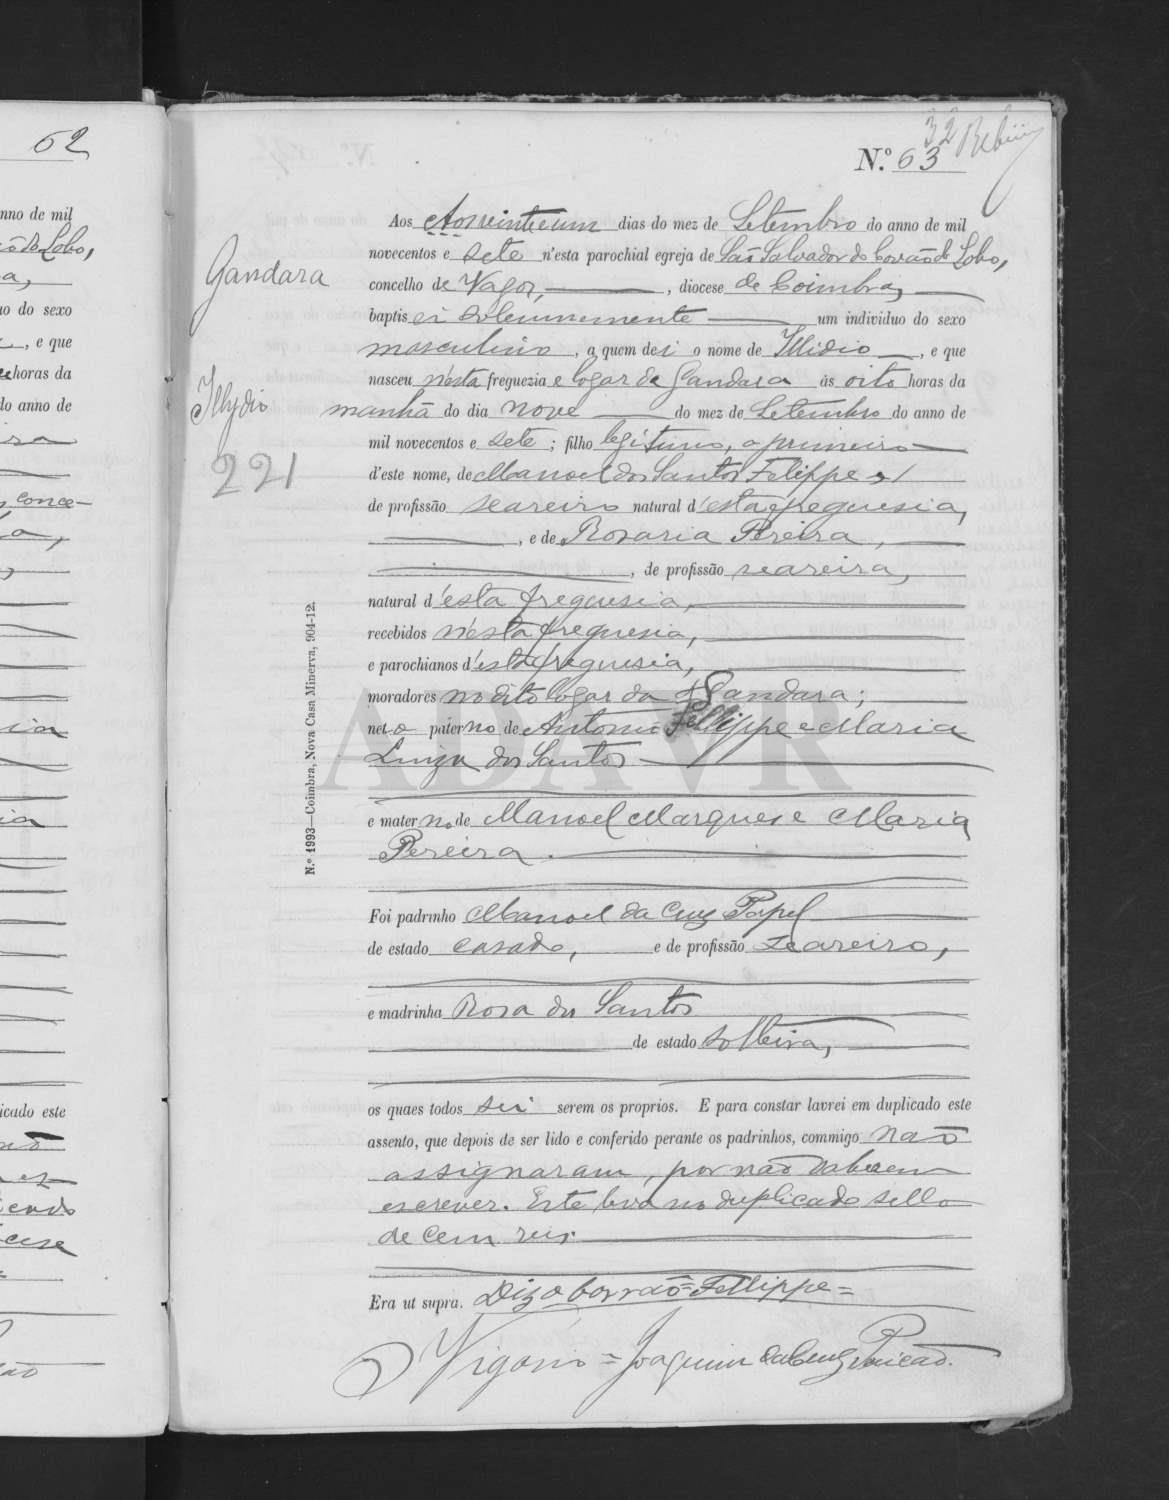 62
32
N.º 63
Aos Aos vinte e um dias do mez de Setembro do anno de mil
novecentos e sete n'esta parochial egreja de São Salvador do Covão do Lobo,
concelho de Vagos, , diocese de Coimbra,
baptisei solemnemente um individuo do sexo
masculino, a quem dei o nome de Illidio, e que
nasceu n'esta freguezia e logar da Gandara ás oito horas da
manhã do dia nove do mez de Setembro do anno de
mil novecentos e sete; filho legitimo, o primeiro
d'este nome, de Manoel dos Santos Felippe,
de profissão seareiro natural d'esta freguesia,
, e de Rosaria Pereira,
, de profissão seareira,
natural d'esta freguesia,
recebidos n'esta freguesia,
e parochianos d'esta freguesia,
moradores no dito logar da Gandara;
neto paterno de Antonio Fellippe e Maria
Luiza dos Santos
e materno de Manoel Marques e Maria
Pereira.
Foi padrinho Manoel da Cruz Papel
de estado casado, e de profissão seareiro,
e madrinha Rosa dos Santos
de estado solteira,
os quaes todos sei serem os proprios. E para constar lavrei em duplicado este
assento, que depois de ser lido e conferido perante os padrinhos, commigo não
assignaram, por não saberem
escrever. Este leva no duplicado sello
de cem reis.
Era ut supra. Diz o borrão = Fellippe =
O Vigario = Joaquim da Cruz
Gandara
Illydio
221
N.º 1993—Coimbra, Nova Casa Minerva, 904-12.
ADAVR
anno de mil
ão do Lobo,
a,
uo do sexo
, e que
horas da
do anno de
conce-
icado este